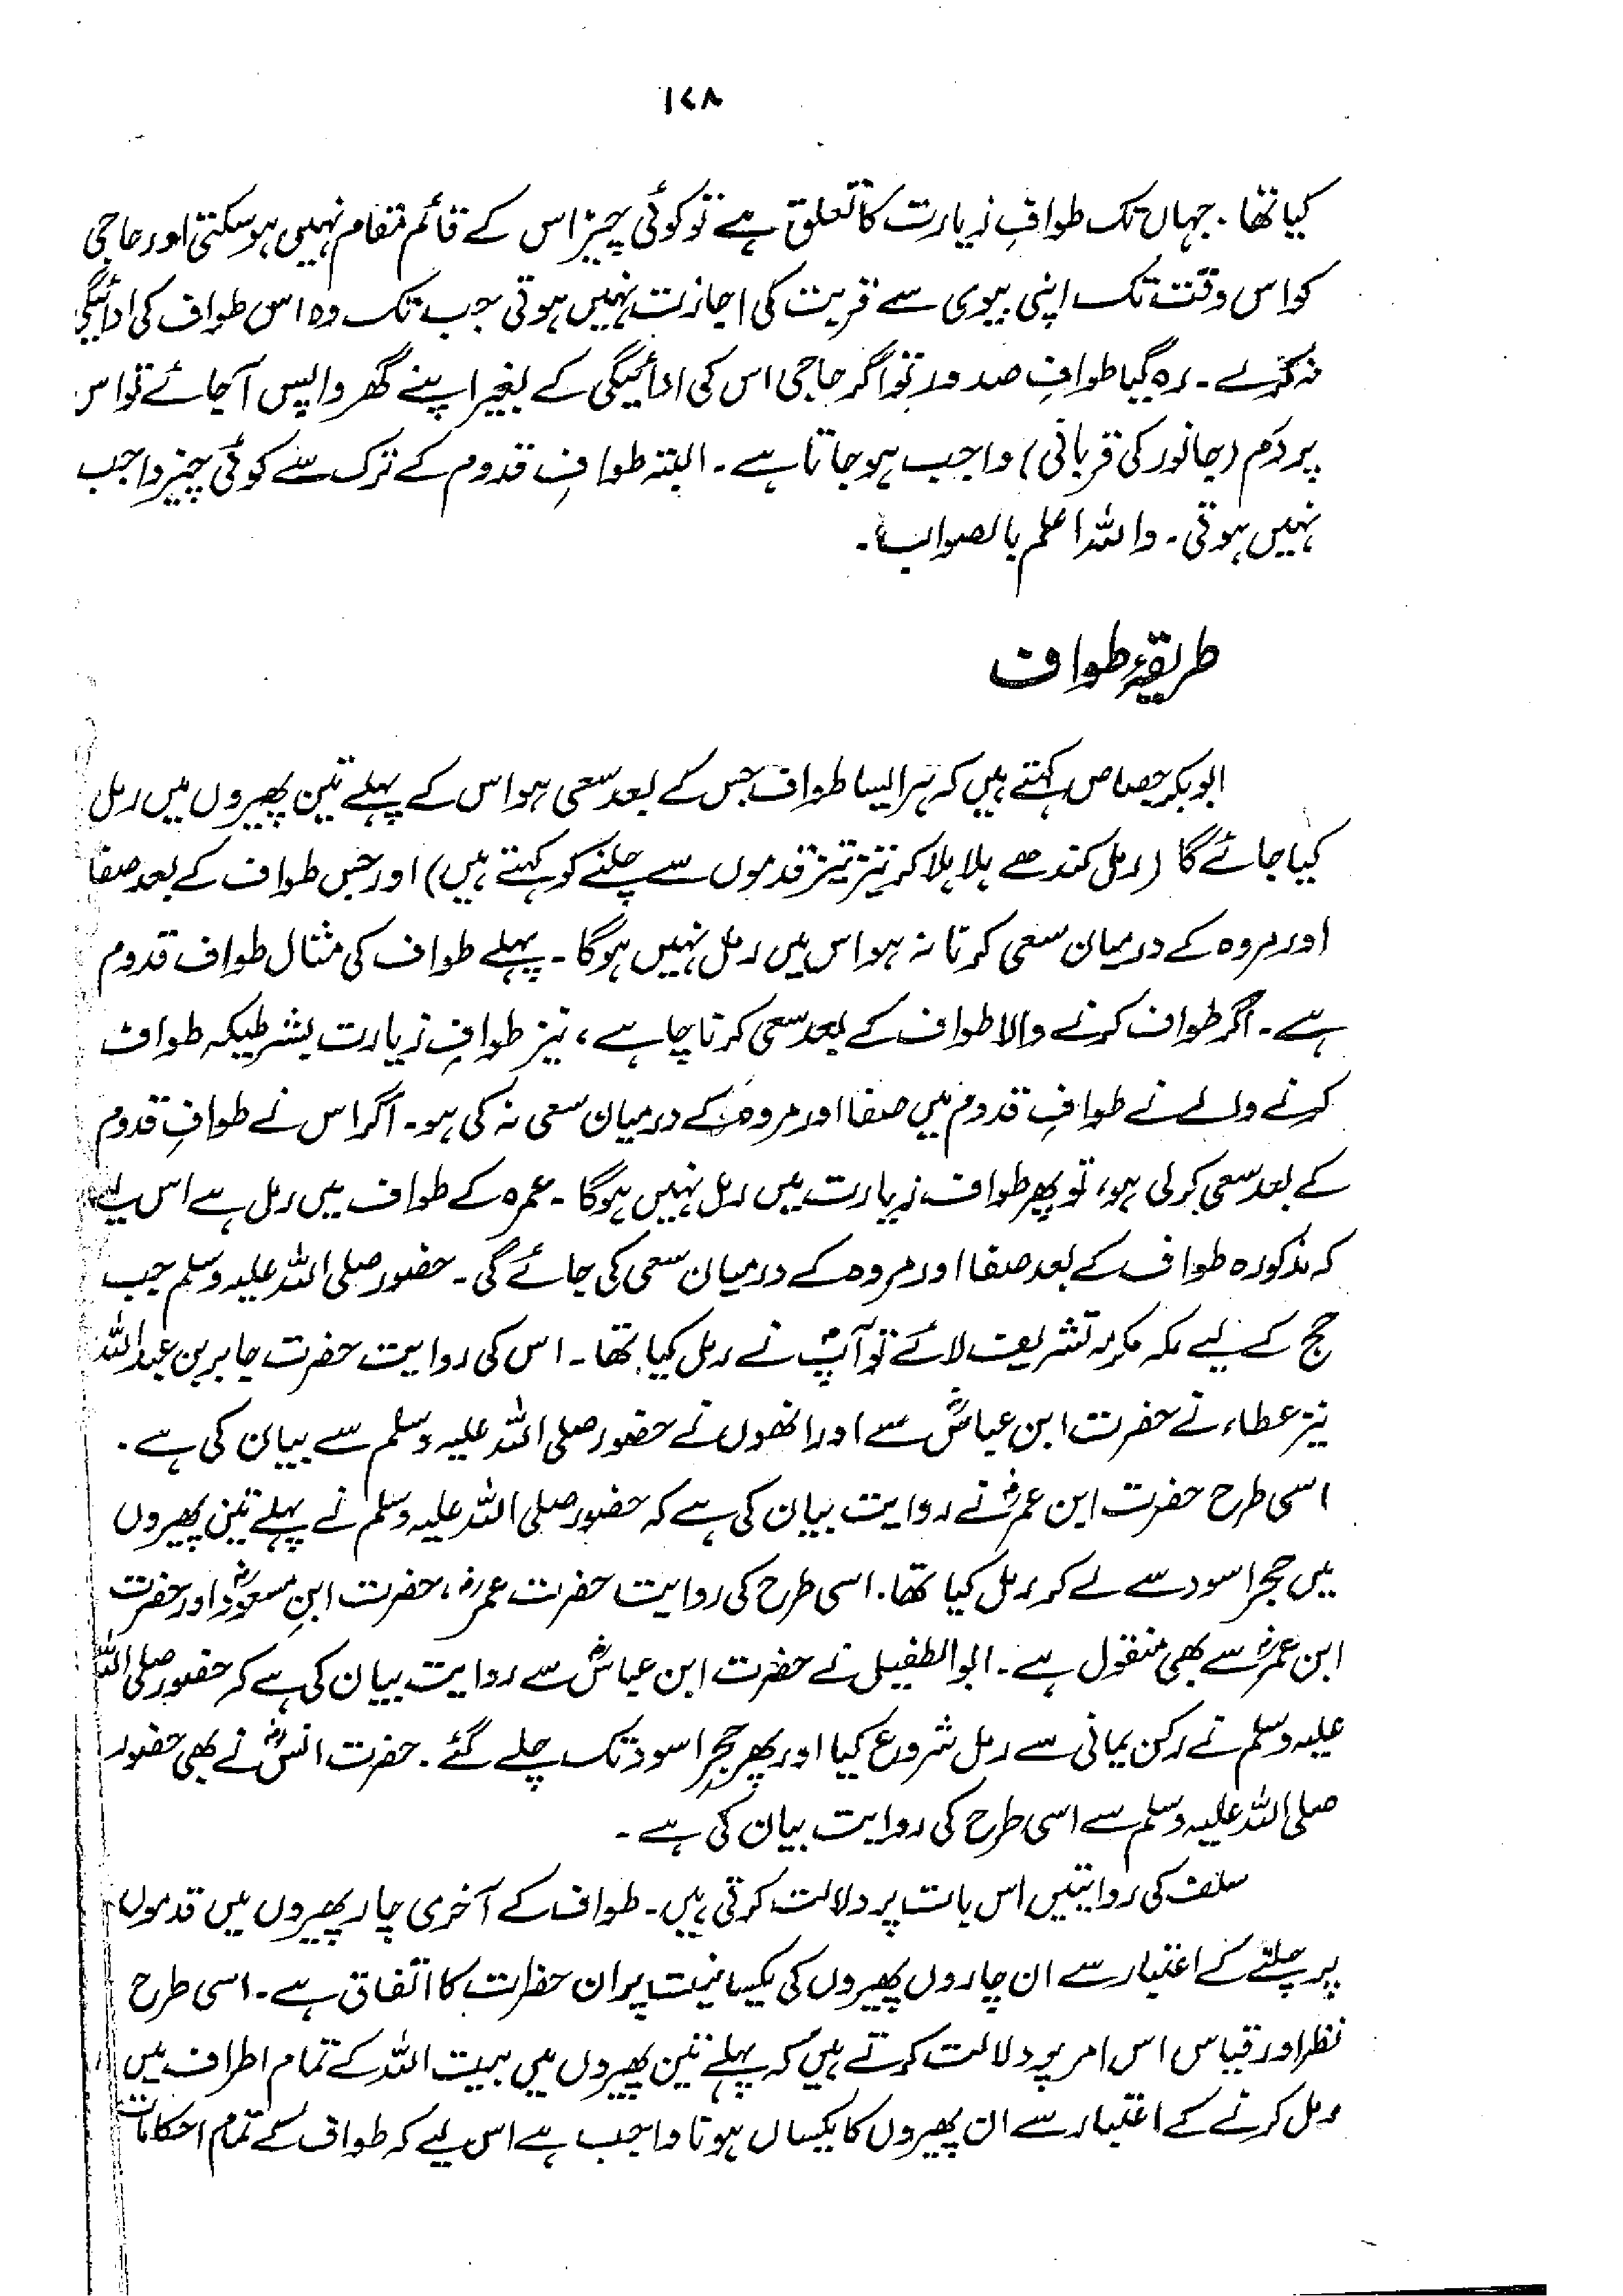 ۱۷۸
کیا تھا۔ جہاں تک طوافِ زیارت کا تعلق ہے تو کوئی چیز اس کے قائم مقام نہیں ہو سکتی اور حاجی
کو اس وقت تک اپنی بیوی سے قربت کی اجازت نہیں ہوتی جب تک وہ اس طواف کی ادائیگی
نہ کرلے۔ رہ گیا طوافِ صدور تو اگر حاجی اس کی ادائیگی کے بغیر اپنے گھر واپس آجائے تو اس
پر دَم (جانور کی قربانی) واجب ہو جاتا ہے۔ البتہ طوافِ قدوم کے ترک سے کوئی چیز واجب
نہیں ہوتی۔ واللہ اعلم بالصواب۔
طریقۂ طواف
ابوبکر جصاص کہتے ہیں کہ ہر ایسا طواف جس کے بعد سعی ہو اس کے پہلے تین پھیروں میں رمل
کیا جائے گا (رمل کندھے ہلا ہلا کر تیز تیز قدموں سے چلنے کو کہتے ہیں) اور جس طواف کے بعد صفا
اور مروہ کے درمیان سعی کرنا نہ ہو اس میں رمل نہیں ہوگا۔ پہلے طواف کی مثال طواف قدوم
ہے۔ اگر طواف کرنے والا طواف کے بعد سعی کرنا چاہے، نیز طوافِ زیارت بشرطیکہ طواف
کرنے والے نے طوافِ قدوم میں صفا اور مروہ کے درمیان سعی نہ کی ہو۔ اگر اس نے طوافِ قدوم
کے بعد سعی کرلی ہو، تو پھر طواف زیارت میں رمل نہیں ہوگا۔ عمرہ کے طواف میں رمل ہے اس لیے
کہ مذکورہ طواف کے بعد صفا اور مروہ کے درمیان سعی کی جائے گی۔ حضور صلی اللہ علیہ وسلم جب
حج کے لیے مکہ مکرمہ تشریف لائے تو آپؐ نے رمل کیا تھا۔ اس کی روایت حضرت جابر بن عبداللہ
نیز عطاء نے حضرت ابن عباسؓ سے اور انھوں نے حضور صلی اللہ علیہ وسلم سے بیان کی ہے۔
اسی طرح حضرت ابن عمرؓ نے روایت بیان کی ہے کہ حضور صلی اللہ علیہ وسلم نے پہلے تین پھیروں
میں حجرِ اسود سے لے کر رمل کیا تھا۔ اسی طرح کی روایت حضرت عمرؓ، حضرت ابنِ مسعودؓ اور حضرت
ابن عمرؓ سے بھی منقول ہے۔ ابوالطفیل نے حضرت ابن عباسؓ سے روایت بیان کی ہے کہ حضور صلی اللہ
علیہ وسلم نے رکن یمانی سے رمل شروع کیا اور پھر حجرِ اسود تک چلے گئے۔ حضرت انسؓ نے بھی حضور
صلی اللہ علیہ وسلم سے اسی طرح کی روایت بیان کی ہے۔
سلف کی روایتیں اس بات پر دلالت کرتی ہیں۔ طواف کے آخری چار پھیروں میں قدموں
پر چلنے کے اعتبار سے ان چاروں پھیروں کی یکسانیت پر ان حضرات کا اتفاق ہے۔ اسی طرح
نظر اور قیاس اس امر پر دلالت کرتے ہیں کہ پہلے تین پھیروں میں بیت اللہ کے تمام اطراف میں
رمل کرنے کے اعتبار سے ان پھیروں کا یکساں ہونا واجب ہے اس لیے کہ طواف کے تمام احکامات